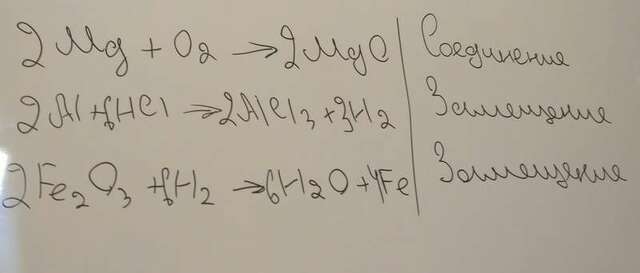 2Mg + O₂ → 2MgO | Соединение
2Al + 6HCl → 2AlCl₃ + 3H₂ | Замещение
2Fe₂O₃ + 6H₂ → 6H₂O + 4Fe | Замещение